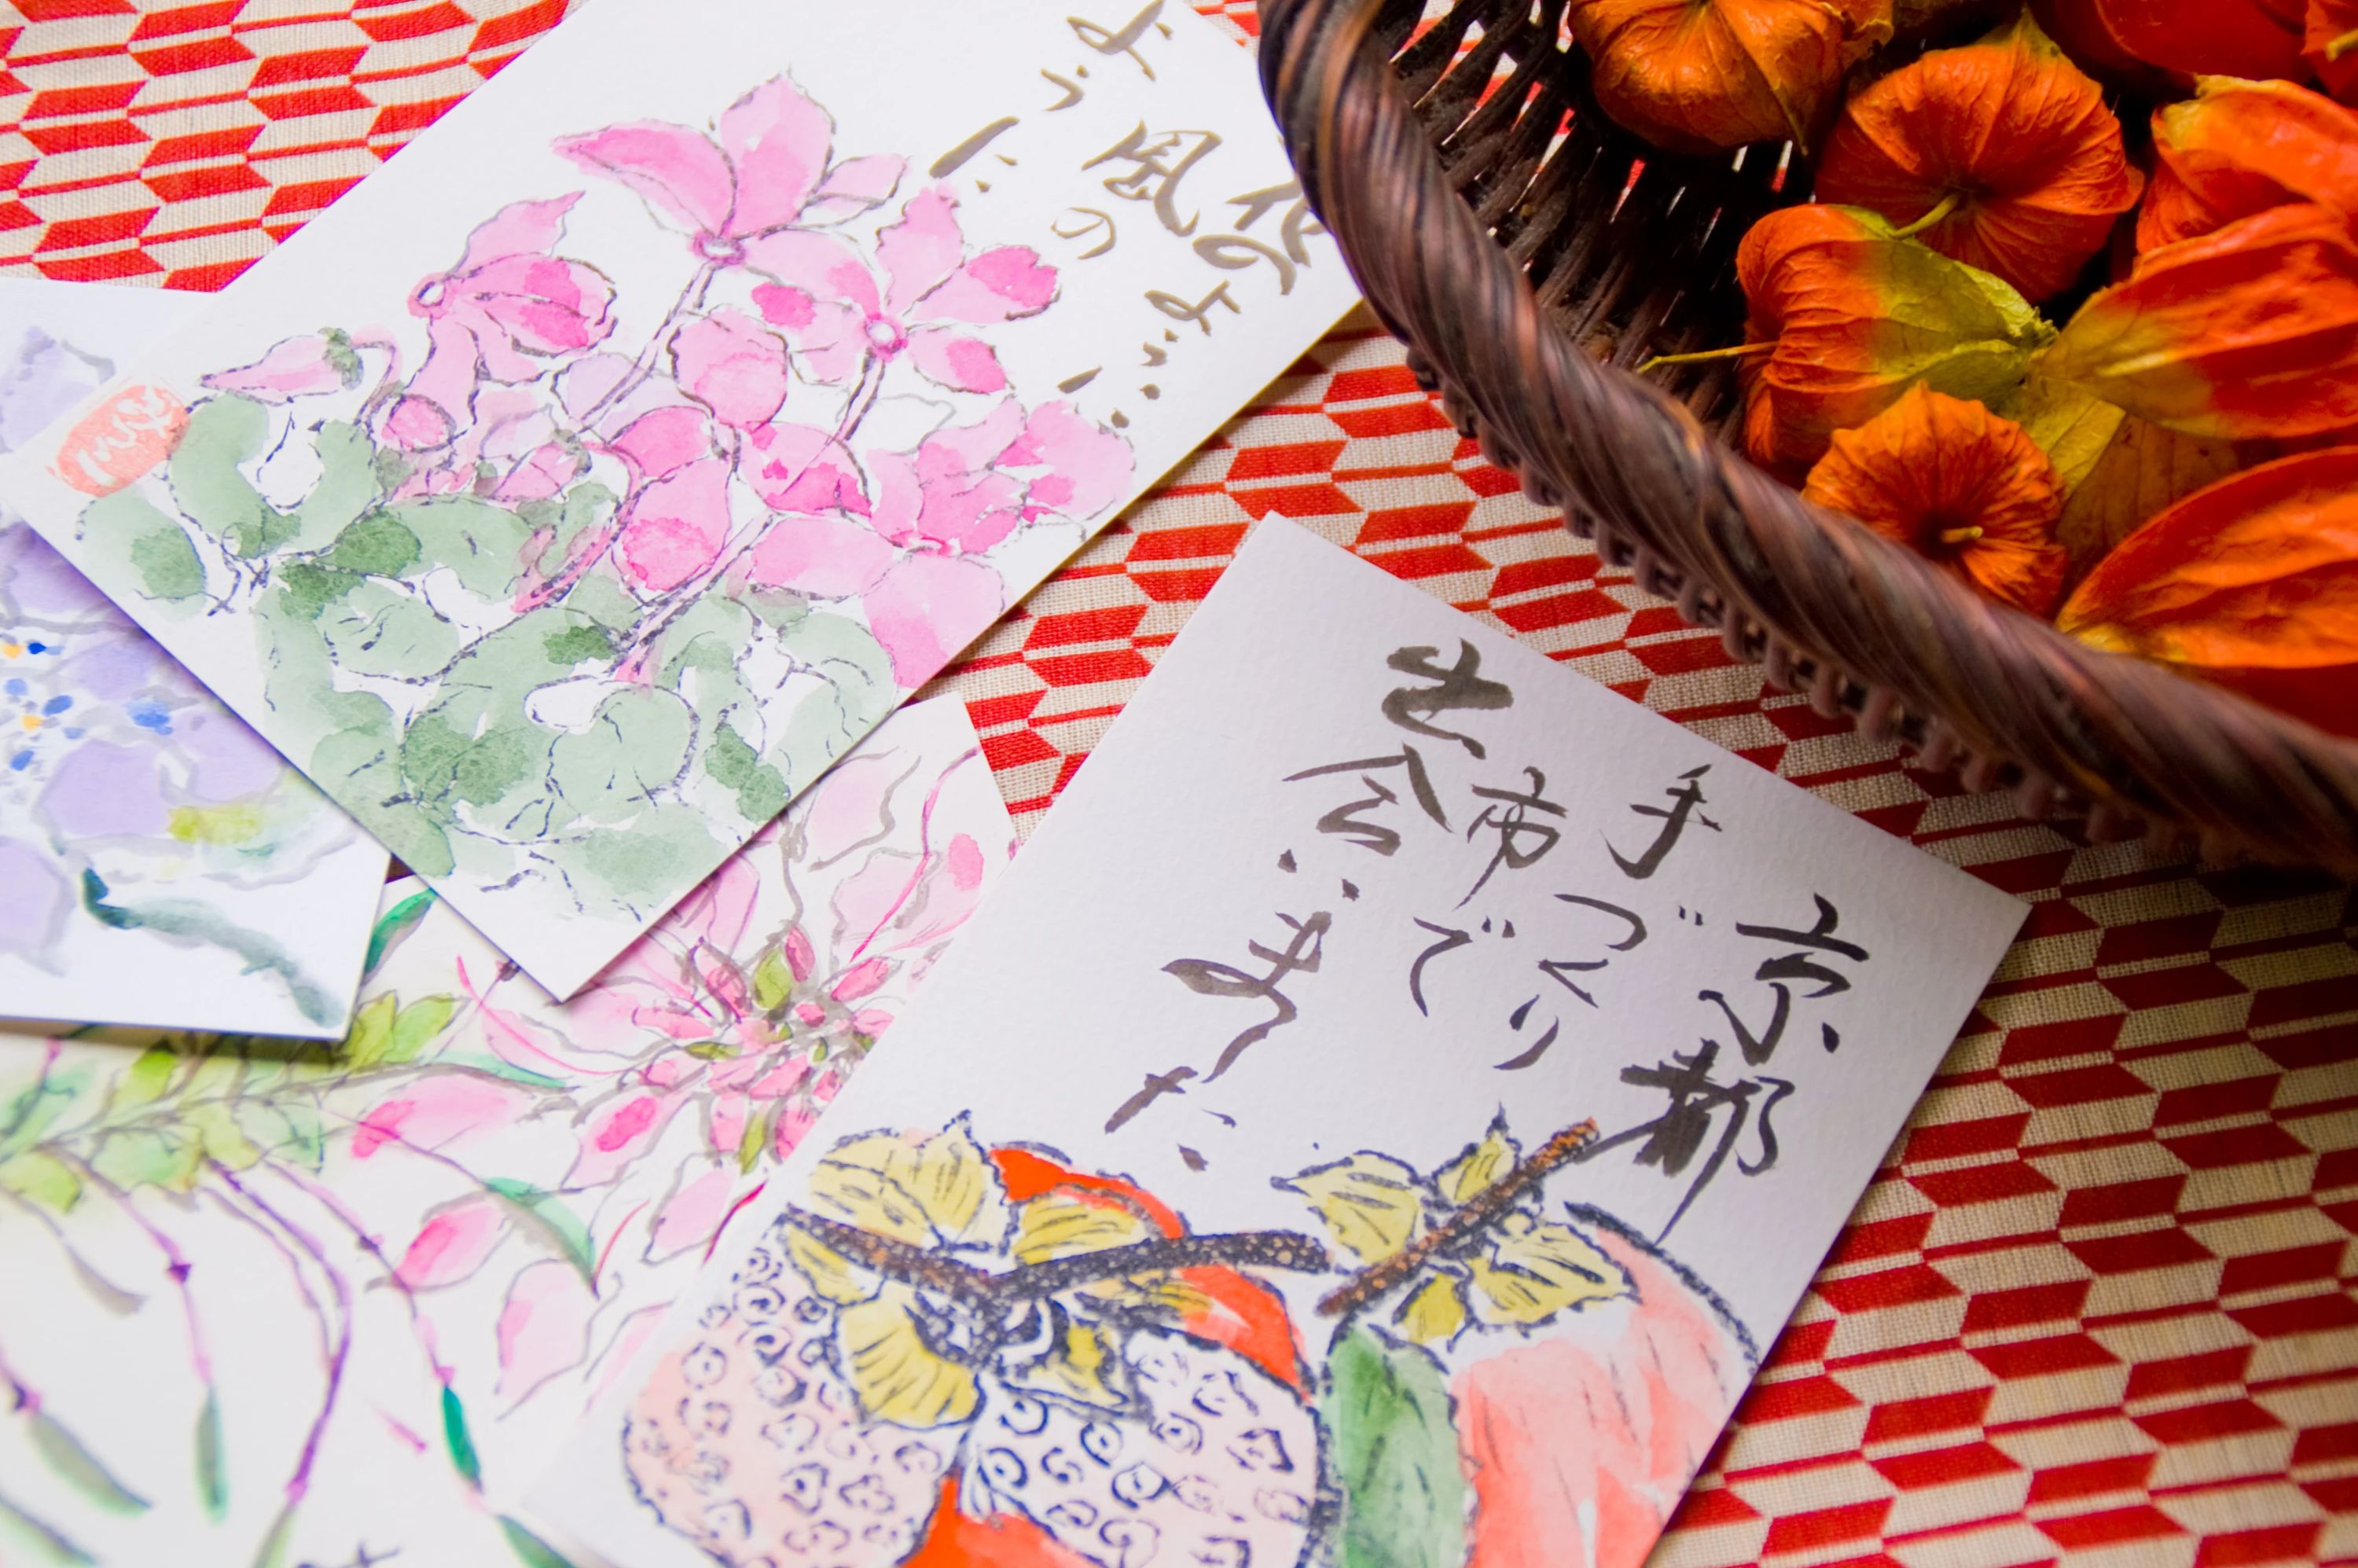 花のように
風の
ように
京都
手づくり
市で
出会いました